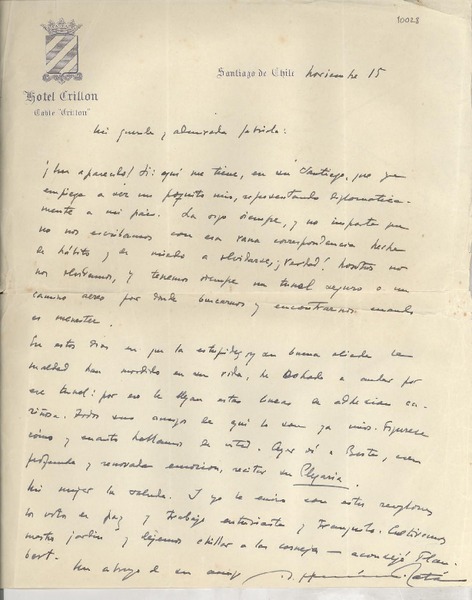 10028
Hotel Crillon
Cable "Crillon"
Santiago de Chile noviembre 15
Mi querida y admirada Gabriela:
¡Un aparecido! Sí: aquí me tiene, en su Santiago, que ya
empieza a ser un poquito mío, representando diplomática-
mente a mi país. La sigo siempre, y no importa que
no nos escribamos con esa vana correspondencia hecha
de hábito y de miedo a olvidarse, ¡verdad! Nosotros no
nos olvidamos, y tenemos siempre un tunel seguro o un
camino aereo por donde buscarnos y encontrarnos cuando
es menester.
En estos días en que la estupidez y su buena aliada la
maldad han mordido en su vida, he echado a andar por
ese tunel: por no le llegan estas líneas de adhesión ca-
riñosa. Todos sus amigos de aquí lo son ya míos. Figurese
cómo y cuanto hablamos de usted. Ayer oí a Berta, con
profunda y renovada emoción, recitar su Plegaria.
Mi mujer la saluda. Y yo le envío con estos renglones
los votos de paz y trabajo entusiasta y tranquilo. Cultivemos
nuestro jardín y dejemos chillar a las cornejas — aconsejó Flau-
bert.
Un abrazo de su amigo
A. Hernández Catá